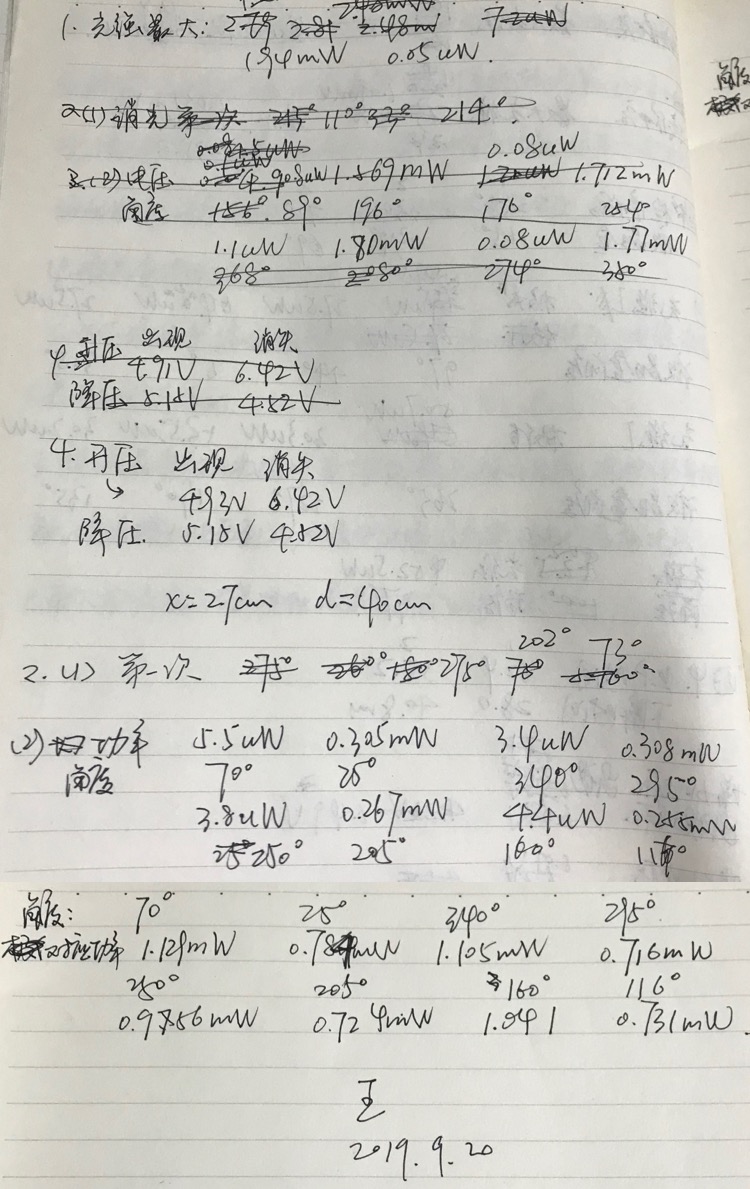 1. 光强最大: 2.48mW 7.2uW
1.94mW 0.05uW.
2.(1) 消光 第一次 215° 110° 33° 214°.
0.1uW 0.08uW
3.(2) 电压 4.908uW 1.569mW 1.712mW
角度 156°. 89° 196° 176° 254°
1.1uW 1.80mW 0.08uW 1.77mW
368° 2080° 274° 350°
4. 升压 出现 消失
4.91V 6.42V
降压 5.15V 4.52V
4. 升压 出现 消失
4.93V 6.42V
降压. 5.15V 4.52V
x=2.7cm d=40cm
202° 73°
2.(1) 第一次 275° 180° 275°
(2) 功率 5.5uW 0.305mW 3.4uW 0.308mW
角度 70° 25° 340° 295°
3.8uW 0.267mW 4.4uW 0.255mW
250° 205° 160° 116°
角度: 70° 25° 340° 295°
对应功率 1.129mW 0.784mW 1.105mW 0.716mW
250° 205° 160° 116°
0.9756mW 0.724mW 1.041 0.731mW.
王
2019.9.20
角度